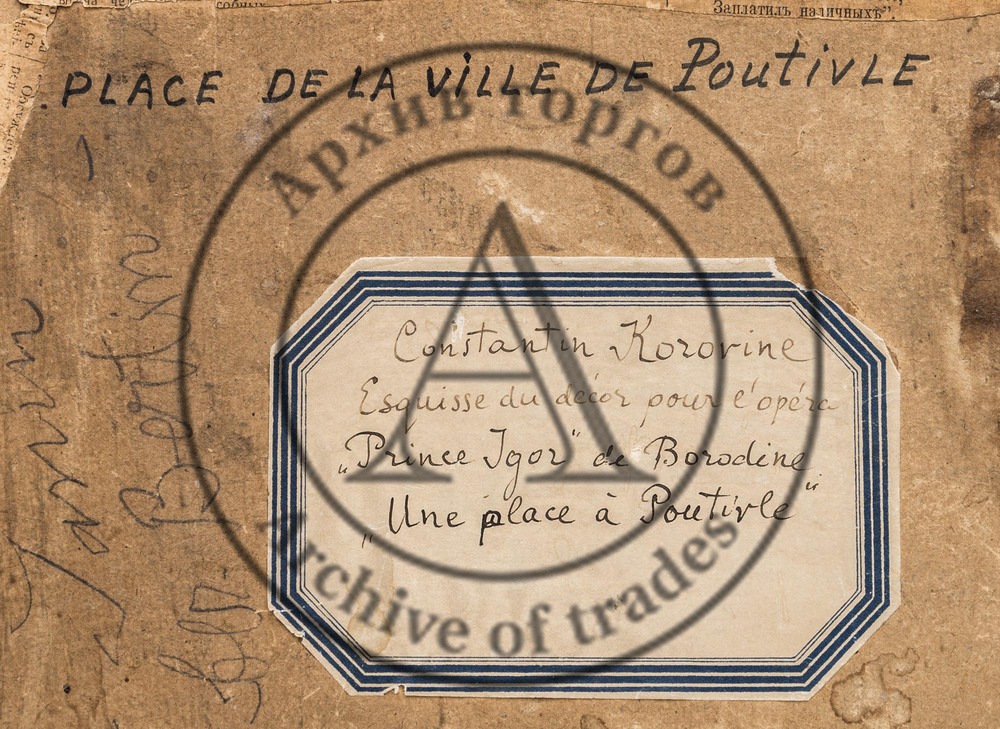 Заплатилъ наличныхъ".
PLACE DE LA VILLE DE POUTIVLE
Архив торгов
Constantin Korovine
Esquisse du décor pour l'opéra
„Prince Igor" de Borodine
„Une place à Poutivle"
Archive of trades